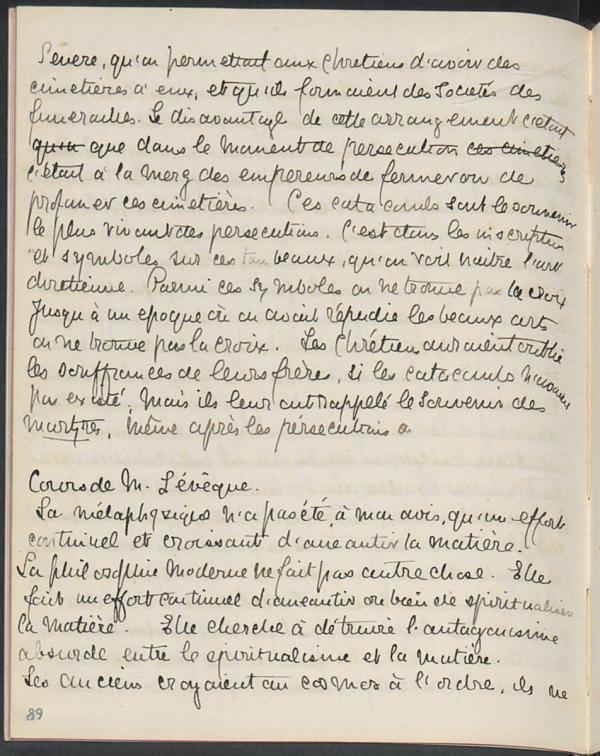 Severe, qu'on permettait aux Chretiens d'avoir des
cimetières à eux, et qu'ils formaient des Societés des
funerailles. Le disavantage de cette arrangement c'était
que dans le moment de persecution ces cimetieres
c'était à la merg des empereurs de fermer ou de
profaner ces cimetières. Ces catacombs sont le souvenir
le plus vivant des persecutions. C'est dans les inscriptions
et symboles sur ces tombeaux, qu'on voit naitre l'art
chretienne. Parmi ces symboles on ne trouve pas la croix
Jusqu'à un epoque où on avait répudié les beaux arts
on ne trouve pas la croix. Les Chrétiens auraient oublié
les souffrances de leurs frères, si les catacombs n'avaient
pas existé, mais ils leur ont rappelé le souvenir des
martyres, même après les pérsecutions.
Cours de M. Lévêque.
La métaphysique n'a pas été, à mon avis, qu'un effort
continuel et croissant d'aneantir la matière.
La philosophie moderne ne fait pas autre chose. Elle
fait un effort continuel d'aneantir ou bien de spiritualiser
la matière. Elle cherche à détruire l'antagonisme
absurde entre le spiritualisme et la matière.
Les anciens croyaient au cosmos à l'ordre, ils ne
89